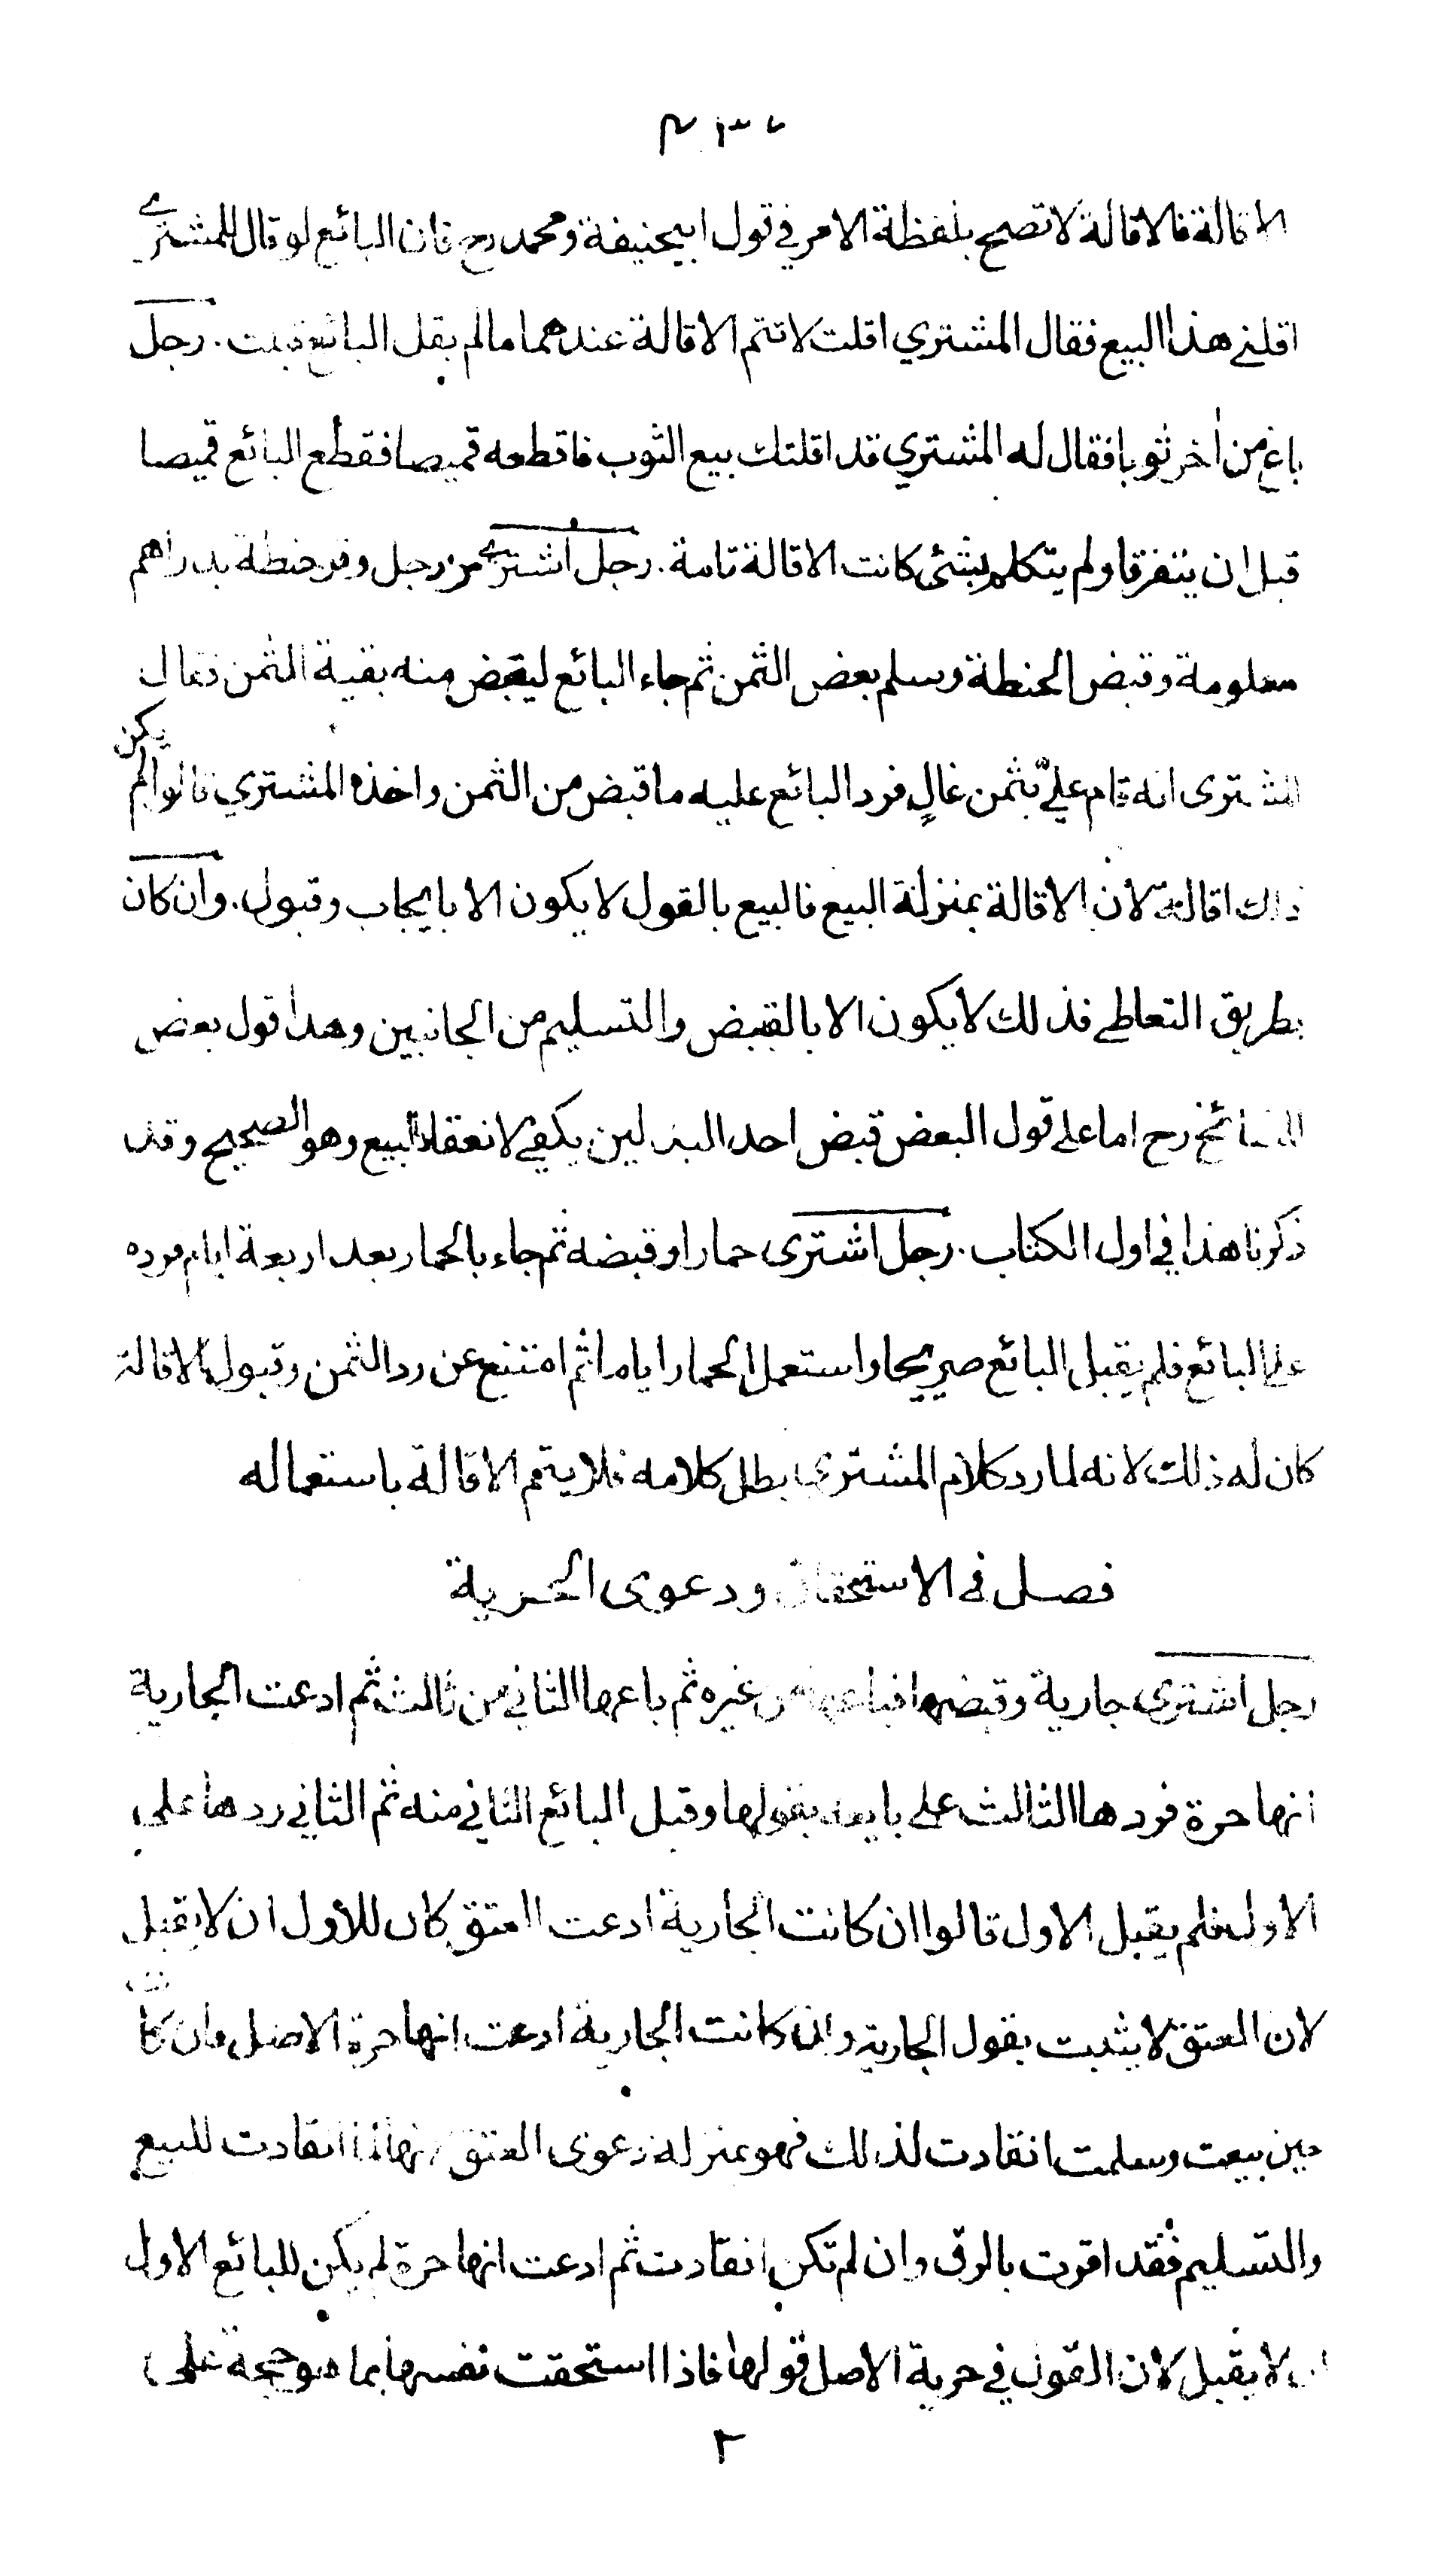 الاقالة فالاقالة لا تصح بلفظة الامر في قول ابيحنيفة ومحمد رح فان البائع لو قال للمشتري
اقلني هذا البيع فقال المشتري اقلت لا تتم الاقالة عندهما ما لم يقل البائع قبلت . رجل
باع من اخر ثوبا فقال له المشتري قد اقلتك بيع الثوب فاقطعه قميصا فقطع البائع قميصا
قبل ان يتفرقا ولم يتكلم بشئ كانت الاقالة تامة . رجل اشترى من رجل وقر حنطة بدراهم
معلومة وقبض الحنطة وسلم بعض الثمن ثم جاء البائع ليقبض منه بقية الثمن فقال
المشترى انه قام عليّ بثمن غالٍ فرد البائع عليه ما قبض من الثمن واخذه المشتري قالوا لم يكن
ذلك اقالة لان الاقالة بمنزلة البيع فالبيع بالقول لا يكون الا بايجاب وقبول . وان كان
بطريق التعاطي فذلك لا يكون الا بالقبض والتسليم من الجانبين وهذا قول بعض
المشائخ رح اما على قول البعض قبض احد البدلين يكفي لانعقاد البيع وهو الصحيح وقد
ذكرنا هذا في اول الكتاب . رجل اشترى حمارا وقبضه ثم جاء بالحمار بعد اربعة ايام فرده
على البائع فلم يقبل البائع صريحا واستعمل الحمار اياما ثم امتنع عن رد الثمن وقبول الاقالة
كان له ذلك لانه لما رد كلام المشتري بطل كلامه فلا يتم الاقالة باستعماله
فصل في الاستحقاق ودعوى الحرية
رجل اشترى جارية وقبضها فباعها من غيره ثم باعها الثاني من ثالث ثم ادعت الجارية
انها حرة فردها الثالث على بايعه بقولها وقبل البائع الثاني منه ثم الثاني ردها على
الاول فلم يقبل الاول قالوا ان كانت الجارية ادعت العتق كان للاول ان لا يقبل
لان العتق لا يثبت بقول الجارية وان كانت الجارية ادعت انها حرة الاصل فان كانت
حين بيعت وسلمت انقادت لذلك فهو بمنزلة دعوى العتق لانها لما انقادت للبيع
والتسليم فقد اقرت بالرق وان لم تكن انقادت ثم ادعت انها حرة لم يكن للبائع الاول
ان لا يقبل لان القول في حرية الاصل قولها فاذا استحقت نفسها بما هو حجة على
٢